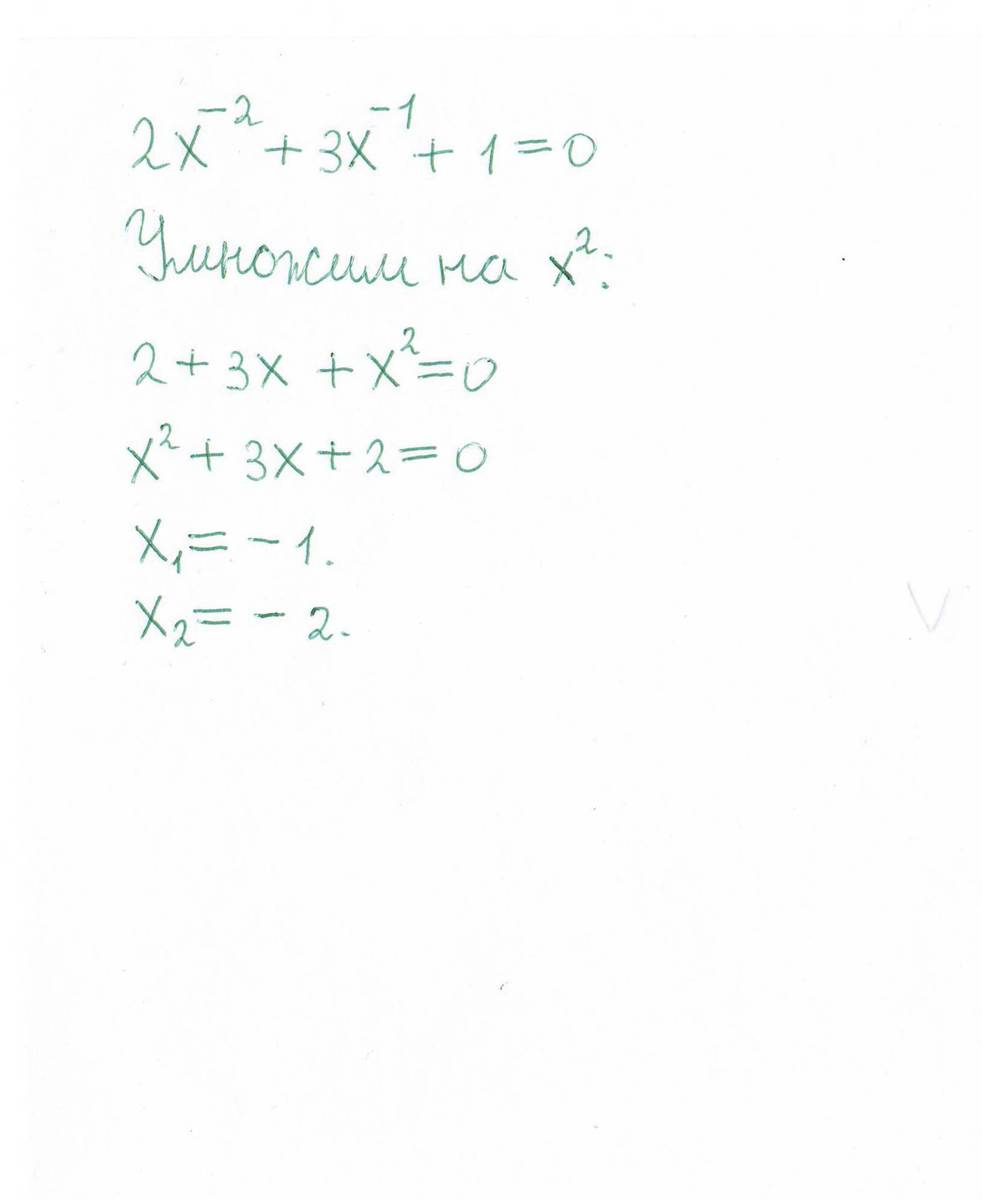 2x⁻² + 3x⁻¹ + 1 = 0
Умножим на x²:
2 + 3x + x² = 0
x² + 3x + 2 = 0
x₁ = - 1.
x₂ = - 2.